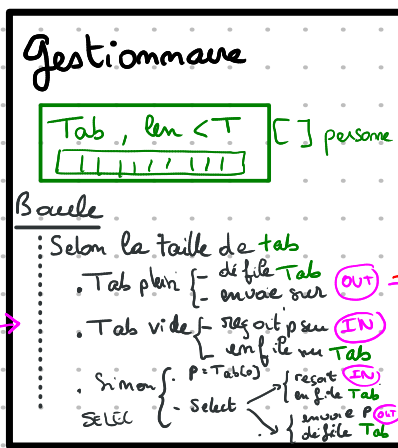 Gestionnaire
Tab, len < T [ ] personne
Boucle
Selon la taille de tab
. Tab plein { - défile Tab
- envoie sur OUT
. Tab vide { - reçoit p sur IN
- enfile sur Tab
. Sinon { . p = Tab[0]
SELEC - Select { reçoit IN
enfile Tab
{ envoie p OUT
défile Tab